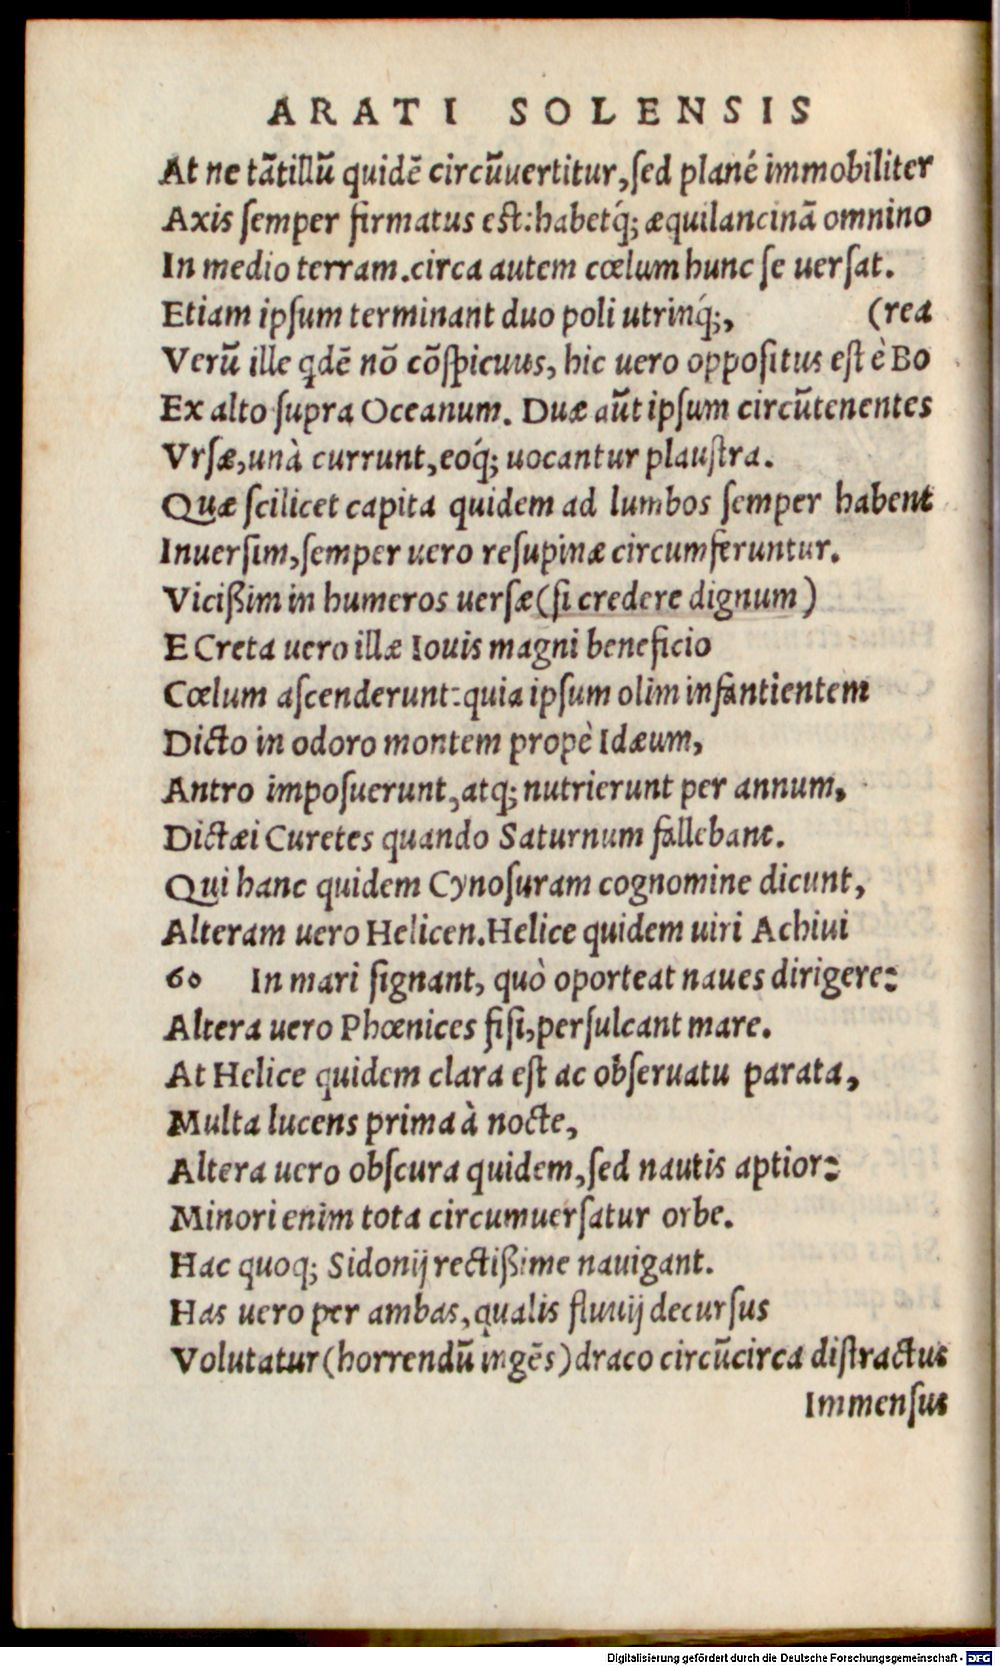 ARATI SOLENSIS
At ne tātillū quidē circūuertitur, ſed planè immobiliter
Axis ſemper firmatus eſt: habetq́; æquilancinā omnino
In medio terram. circa autem cœlum hunc ſe uerſat.
Etiam ipſum terminant duo poli utrinq́;, (rea
Verū ille qdē nō cōſpicuus, hic uero oppoſitus eſt è Bo
Ex alto ſupra Oceanum. Duæ aūt ipſum circūtenentes
Vrſæ, unà currunt, eoq́; uocantur plauſtra.
Quæ ſcilicet capita quidem ad lumbos ſemper habent
Inuerſim, ſemper uero reſupinæ circumferuntur.
Vicißim in humeros uerſæ (ſi credere dignum)
E Creta uero illæ Iouis magni beneficio
Cœlum aſcenderunt: quia ipſum olim infantientem
Dicto in odoro montem propè Idæum,
Antro impoſuerunt, atq; nutrierunt per annum,
Dictæi Curetes quando Saturnum fallebant.
Qui hanc quidem Cynoſuram cognomine dicunt,
Alteram uero Helicen. Helice quidem uiri Achiui
60 In mari ſignant, quò oporteat naues dirigere:
Altera uero Phœnices fiſi, perſulcant mare.
At Helice quidem clara eſt ac obſeruatu parata,
Multa lucens prima à nocte,
Altera uero obſcura quidem, ſed nautis aptior:
Minori enim tota circumuerſatur orbe.
Hac quoq; Sidonij rectißime nauigant.
Has uero per ambas, qualis fluuij decurſus
Volutatur (horrendū ingēs) draco circūcirca diſtractus
Immenſus
Digitalisierung gefördert durch die Deutsche Forschungsgemeinschaft - DFG